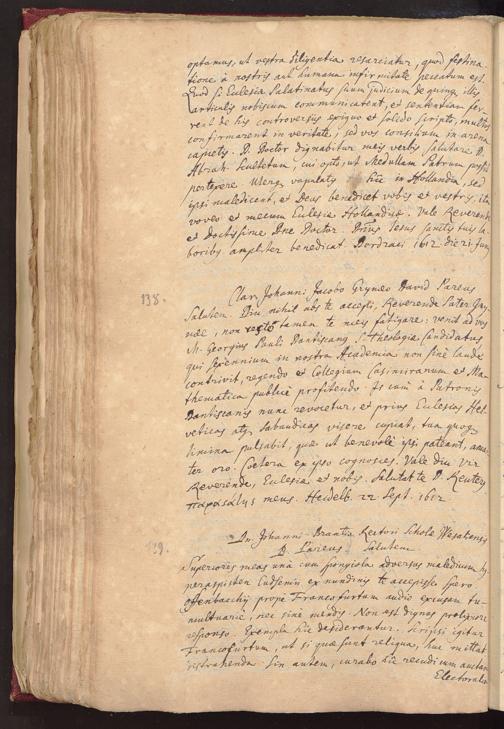 optamus, ut vestra diligentia resarciatur, quod festina
tione à nostris aut humana infirmitate peccatum est.
Quod si Ecclesia Palatinatus suum judicium de quinque illis
articulis nobiscum communicarent, et sententiam fer
rent de his controversiis exiguo et solido scripto, multos
confirmarent in veritate; sed vos consilium in arena
capietis. D. Doctor dignabitur meis verbis salutare D.
Abrah. Scultetum, cui opto, ut Medullam Patrum possit
pertexere. vapulat hîc in Hollandia, sed
ipsi maledicent, et Deus benedicet vobis et vestris, ita
voveo et mecum Ecclesiae Hollandicae. Vale Reverende
et Doctissime Dne Doctor. Dnus Jesus sanctis tuis la
boribus ampliter benedicat. Dordraci 1612
138. Clar. Johanni Jacobo Grynaeo David Pareus
Salutem. Diu nihil abs te accepi, Reverende Pater Gry
naee, non tamen te meis fatigare: venit ad vos
M. Georgius Pauli Dantiscanus, S. Theologiae Candidatus
qui sexennium in nostra Academia non sine laude
contrivit, regendo et Collegium Casimirianum et Ma
thematica publicè profitendo. Is cum à Patronis
Dantiscanis nunc revocetur, et prius Ecclesias Hel
veticas atque Sabaudicas visere cupiat, tua quoque
limina pulsabit, quae ut benevole ipsi pateant, aman
ter oro. Caetera ex ipso cognosces. Vale diu Vir
Reverende, Ecclesiae et nobis. Salutat te D. Reuter
meus. Heidelb. 22 Sept. 1612
139. Dn. Johanni Brantio Rectori Scholae Wesaliensis
D. Pareus Salutem.
Superiores meas unà cum spongiola adversus maledicum
ex nundinis te accepisse spero
Offenbacchii prope Francofurtum audio excusam tu
multuariè, nec sine mendis. Non est dignus prolixiore
responso. Exempla hîc desiderantur. Scripsi igitur
Francofurtum, ut si quae sunt reliqua, huc mittat
distrahenda. Sin autem, curabo hîc recudi cum auctar.
Electoralis